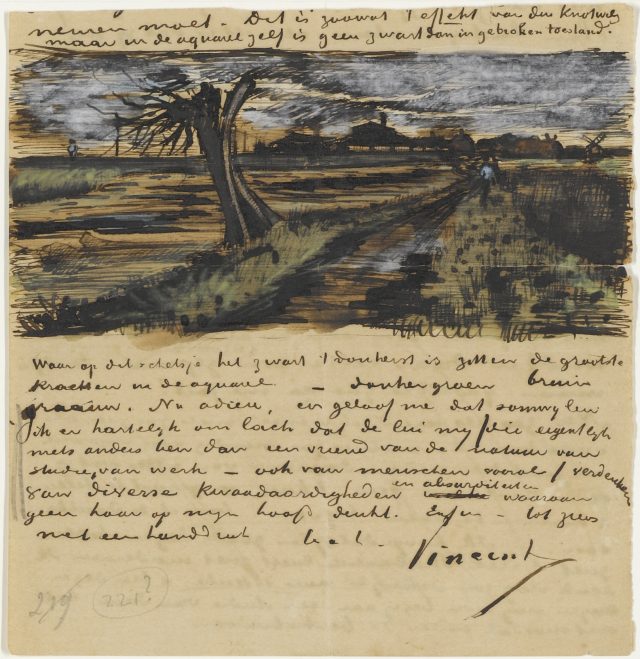 nemen moet. Dit is zoowat 't effekt van den Knotwilg
maar in de aquarel zelf is geen zwart dan in gebroken toestand.
Waar op dit schetsje het zwart 't donkerst is zitten de grootste
krachten in de aquarel — donkergroen bruin
graauw. Nu adieu, en geloof me dat somwijlen
ik er hartelijk om lach dat de lui mij die eigentlijk
niets anders ben dan een vriend van de natuur van
studie, van werk — ook van menschen vooral / verdenken
van diverse kwaadaardigheden en absurditeiten waaraan
geen haar op mijn hoofd denkt. Enfin — tot ziens
met een handdruk
Vincent
219 221?